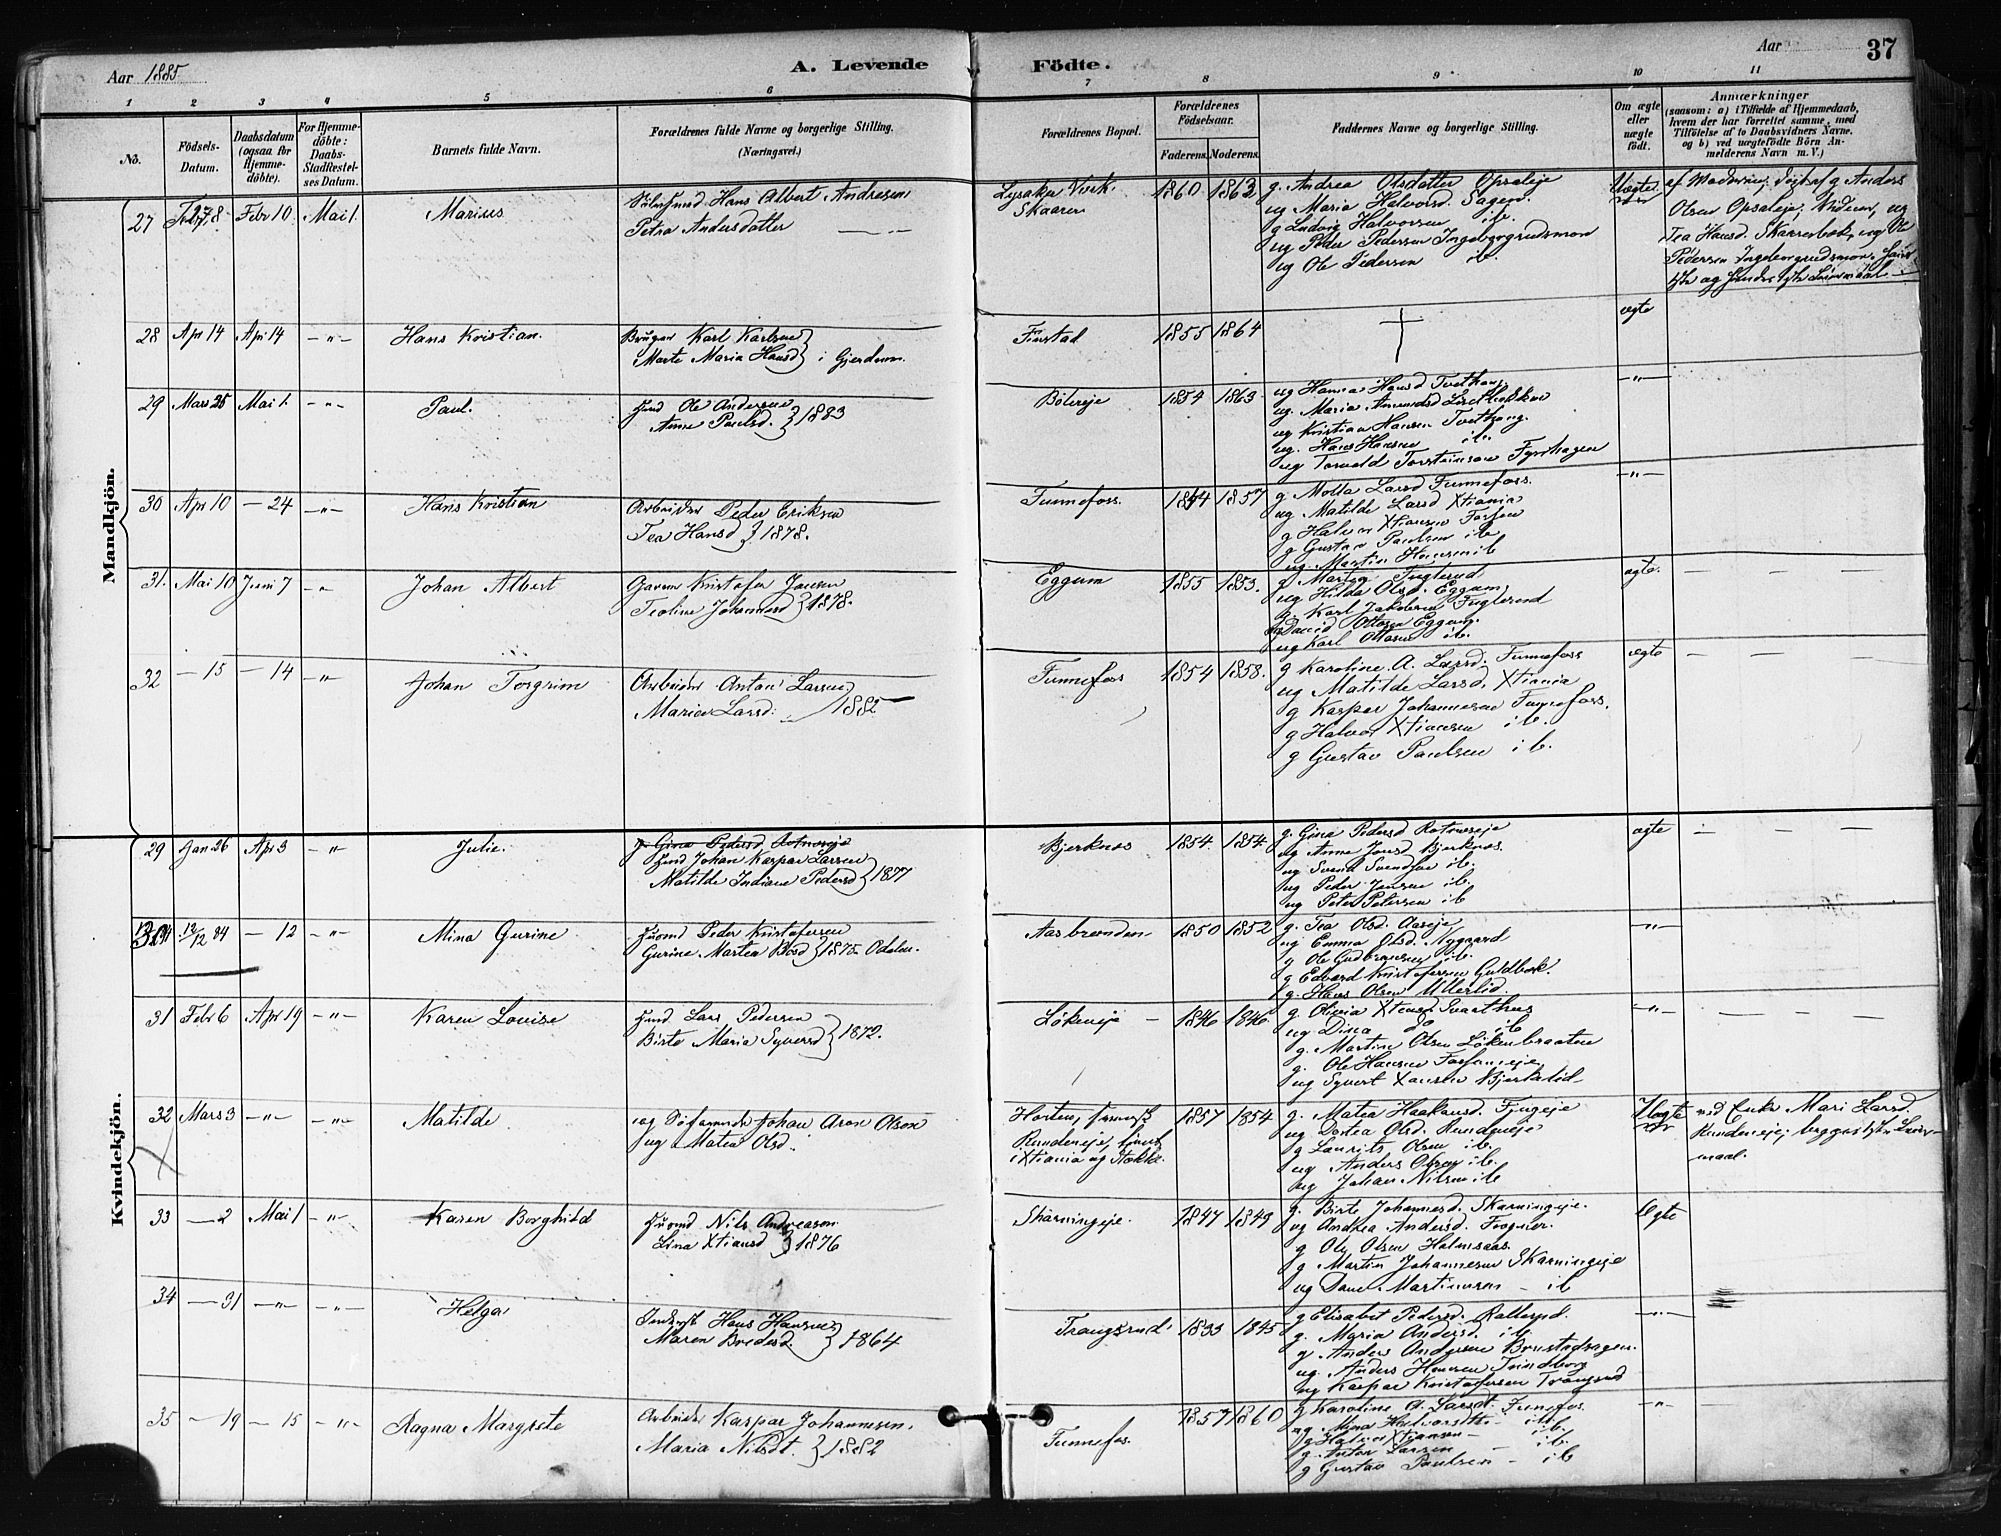 Aar 1885
A. Levende
Födte.
Aar
37
1 2 3 4 5 6 7 8 9 10 11
No.
Födsels-
Datum.
Daabsdatum
(ogsaa for
Hjemme-
döbte).
For Hjemme-
döbte:
Daabs-
Stadfæstel-
ses Datum.
Barnets fulde Navn.
Forældrenes fulde Navne og borgerlige Stilling.
(Næringsvei.)
Forældrenes Bopæl.
Forældrenes
Födselsaar.
Faderens. Moderens.
Faddernes Navne og borgerlige Stilling.
Om ægte
eller
uægte
født.
Anmærkninger
(saasom: a) i Tilfælde af Hjemmedaab,
hvem der har forrettet samme, med
Tilföielse af to Daabsvidners Navne.
og b) ved uægtefödte Börn An-
melderens Navn m. V.)
Mandkjön.
27 Febr 10 Mai 1. Marius
Hans Albert Andresen
Petra Andersdatter
Skaarer
1860 1863
g. Andrea Olsdatter Opsaleje
ug Maria Halvorsd. Sagen
g Ludvig Halvorsen ib.
ug Peder Pedersen Ingeborgrudsmon
ug Ole Pedersen ib.
Uægte
Olsen Opsaleje,
Tea Hansd. Skarresbek, og Ole
Pedersen Ingeborgrudsmon.
28 Apr 14 Apr 14 -"- Hans Kristian.
Bruger Karl Karlsen
Marte Maria Hansd } i Gjerdrum.
Finstad 1855 1864
ægte
29 Mars 25 Mai 1. -"- Paul.
Ole Andersen
Anne Paulsd. } 1883
Bölereje 1854 1863
ug Hanna Hansd Tvethaug
ug. Maria Amundsd
ug Kristian Hansen Tvethaug.
ug. Hans Hansen ib.
ug Torvald Torsteinsen Fyrihagen
-"-
30 Apr 10 - 24 -"- Hans Kristian
Arbeider Peder Eriksen
Tea Hansd } 1878.
Funnefoss. 1854 1857
g. Molla Larsd Funnefoss.
ug. Matilde Larsd Xtiania
g Halvor Xtiansen Fossen
g Gustav Paulsen ib
ug. Martin Hansen ib
-"-
31. Mai 10 Juni 7 -"- Johan Albert
Kristofer Jansen
Teoline Johannesd } 1878.
Eggum 1855 1853.
g Martea Fuglerud
ug Hilda Olsd. Eggum
g. Karl Jakobsen Fuglerud
ug David Ottosen Eggum.
ug Karl Ottosen ib.
ægte. - - -
32 - 15 - 14 -"- Johan Torgrim
Arbeider Anton Larsen
Maria Larsd. } 1882
Funnefoss 1854 1858.
g Karoline A. Larsd. Funnefoss
ug Matilde Larsd. Xtiania
g Kaspar Johannesen Funnefoss.
g Halvor Xtiansen ib.
g Gustav Paulsen ib.
ægte - - -
Kvindekjön.
29 Jan 26 Apr 3 -"- Julie.
g. Gina Pedersd Rotneseje
Johan Kaspar Larsen
Matilde Indiane Pedersd } 1877
Bjerknes 1854. 1854.
g. Gina Pedersd Rotneseje
ug Anne Jensd Bjerknes.
ug Svend Svendsen ib.
ug Peder Jensen ib.
ug Peter Petersen ib
ægte - - -
30 12/12 84 - 12 -"- Mina Gurine.
Peder Kristofersen
Gurine Martea } 1875. Odalen.
Aasbrænden 1850 1852
g. Tea Olsd. Aaseje
ug Emma Olsd. Nygaard
g Ole Gudbransen ib.
g Edvard Kristofersen Guldbæk.
g. Hans Olsen Ullerlid.
-"-
31 Febr 6 Apr 19 -"- Karen Lovise
Lars Pedersen
Birte Maria Syversd } 1872.
Lökeneje 1846 1846
g. Olivia Xtensd Svarthus
ug Dina do ib
g. Martin Olsen Lökenbraaten
g. Ole Hansen Fossumeje,
ug Syvert Xtansen Bjerkelid
-"- - - -
32 Mars 3 -"- -"- Matilde
ug Johan Aron Olson
ug Matea Olsd.
Horten,
Rundeneje,
i Xtiania og
1857 1854
g. Matea Haakensd. Fjugeje
ug Dortea Olsd. Rundeneje
g Laurits Olsen ib.
ug Anders Olsen ib.
ug Johan Nilsen ib
Uægte
ved Enke Mari Larsd.
Rundeneje;
maal.
33 - 2 Mai 1 -"- Karen Borghild
Nils Andreasen
Lina Xtiansd } 1876
Skarningeje. 1847 1849
g. Birte Johannesd. Skarningeje.
ug Andrea Andersd. Frogner.
g Ole Olsen Holmsaas.
g Martin Johannesen Skarningeje
ug Martinusen - ib
Ægte
34 - 31 -"- -"- Helga
Hans Hansen
Maren Bredesd. } 1864
Trangsrud. 1833 1845
g Elisabet Pedersd. Rallerud.
g. Maria Andersd. ib.
g. Anders Andersen Brustadhagen.
ug. Anders Hansen Trindborg
ug Kaspar Kristofersen Trangsrud
-"-
35 - 19 - 15 -"- Ragna Margrete
Arbeider Kaspar Johannesen.
Maria Nilsdt. } 1882
Funnefos. 1857 1860
g Karoline A. Larsdt. Funefos.
ug. Mina Halvorsdt - ib.
g Halvor Xtiansen - ib.
g. Anton Larsen - ib.
g Gustav Paulsen - ib
-"-